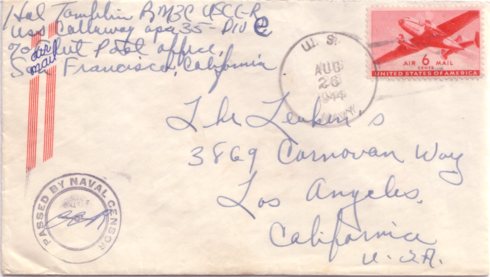 Hal Tamplin BM3C USCG-R
USS Callaway APA 35 - Div
% Fleet Post Office,
San Francisco, California
air
mail
U. S.
AUG
26
1944
NAVY
AIR 6 MAIL
CENTS
UNITED STATES OF AMERICA
The Leuken's
3869 Carnovan Way
Los Angeles,
California
U.S.A.
PASSED BY NAVAL CENSOR